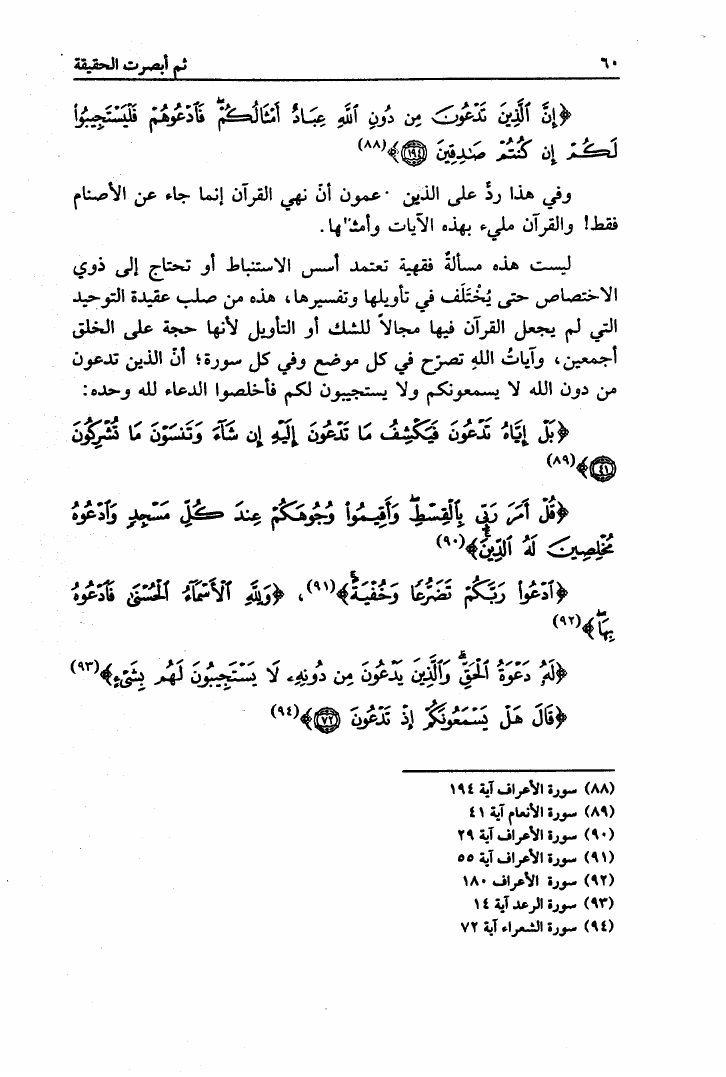 ٦٠ ثم أبصرت الحقيقة
﴿إِنَّ ٱلَّذِينَ تَدْعُونَ مِن دُونِ ٱللَّهِ عِبَادٌ أَمْثَالُكُمْ ۖ فَٱدْعُوهُمْ فَلْيَسْتَجِيبُوا۟
لَكُمْ إِن كُنتُمْ صَـٰدِقِينَ ﴿١٩٤﴾﴾(٨٨)
وفي هذا ردٌّ على الذين عمون أنّ نهي القرآن إنما جاء عن الأصنام
فقط! والقرآن مليء بهذه الآيات وأمثالها.
ليست هذه مسألةٌ فقهية تعتمد أسس الاستنباط أو تحتاج إلى ذوي
الاختصاص حتى يُخْتَلَف في تأويلها وتفسيرها، هذه من صلب عقيدة التوحيد
التي لم يجعل القرآن فيها مجالاً للشك أو التأويل لأنها حجة على الخلق
أجمعين، وآياتُ اللهِ تصرّح في كل موضع وفي كل سورة؛ أنّ الذين تدعون
من دون الله لا يسمعونكم ولا يستجيبون لكم فأخلصوا الدعاء لله وحده:
﴿بَلْ إِيَّاهُ تَدْعُونَ فَيَكْشِفُ مَا تَدْعُونَ إِلَيْهِ إِن شَآءَ وَتَنسَوْنَ مَا تُشْرِكُونَ
﴿٤١﴾﴾(٨٩)
﴿قُلْ أَمَرَ رَبِّي بِٱلْقِسْطِ ۖ وَأَقِيمُوا۟ وُجُوهَكُمْ عِندَ كُلِّ مَسْجِدٍ وَٱدْعُوهُ
مُخْلِصِينَ لَهُ ٱلدِّينَ ۚ﴾(٩٠)
﴿ٱدْعُوا۟ رَبَّكُمْ تَضَرُّعًا وَخُفْيَةً ۚ﴾(٩١)، ﴿وَلِلَّهِ ٱلْأَسْمَآءُ ٱلْحُسْنَىٰ فَٱدْعُوهُ
بِهَا ۖ﴾(٩٢)
﴿لَهُۥ دَعْوَةُ ٱلْحَقِّ ۖ وَٱلَّذِينَ يَدْعُونَ مِن دُونِهِۦ لَا يَسْتَجِيبُونَ لَهُم بِشَىْءٍ﴾(٩٣)
﴿قَالَ هَلْ يَسْمَعُونَكُمْ إِذْ تَدْعُونَ ﴿٧٢﴾﴾(٩٤)
(٨٨) سورة الأعراف آية ١٩٤
(٨٩) سورة الأنعام آية ٤١
(٩٠) سورة الأعراف آية ٢٩
(٩١) سورة الأعراف آية ٥٥
(٩٢) سورة الأعراف ١٨٠
(٩٣) سورة الرعد آية ١٤
(٩٤) سورة الشعراء آية ٧٢